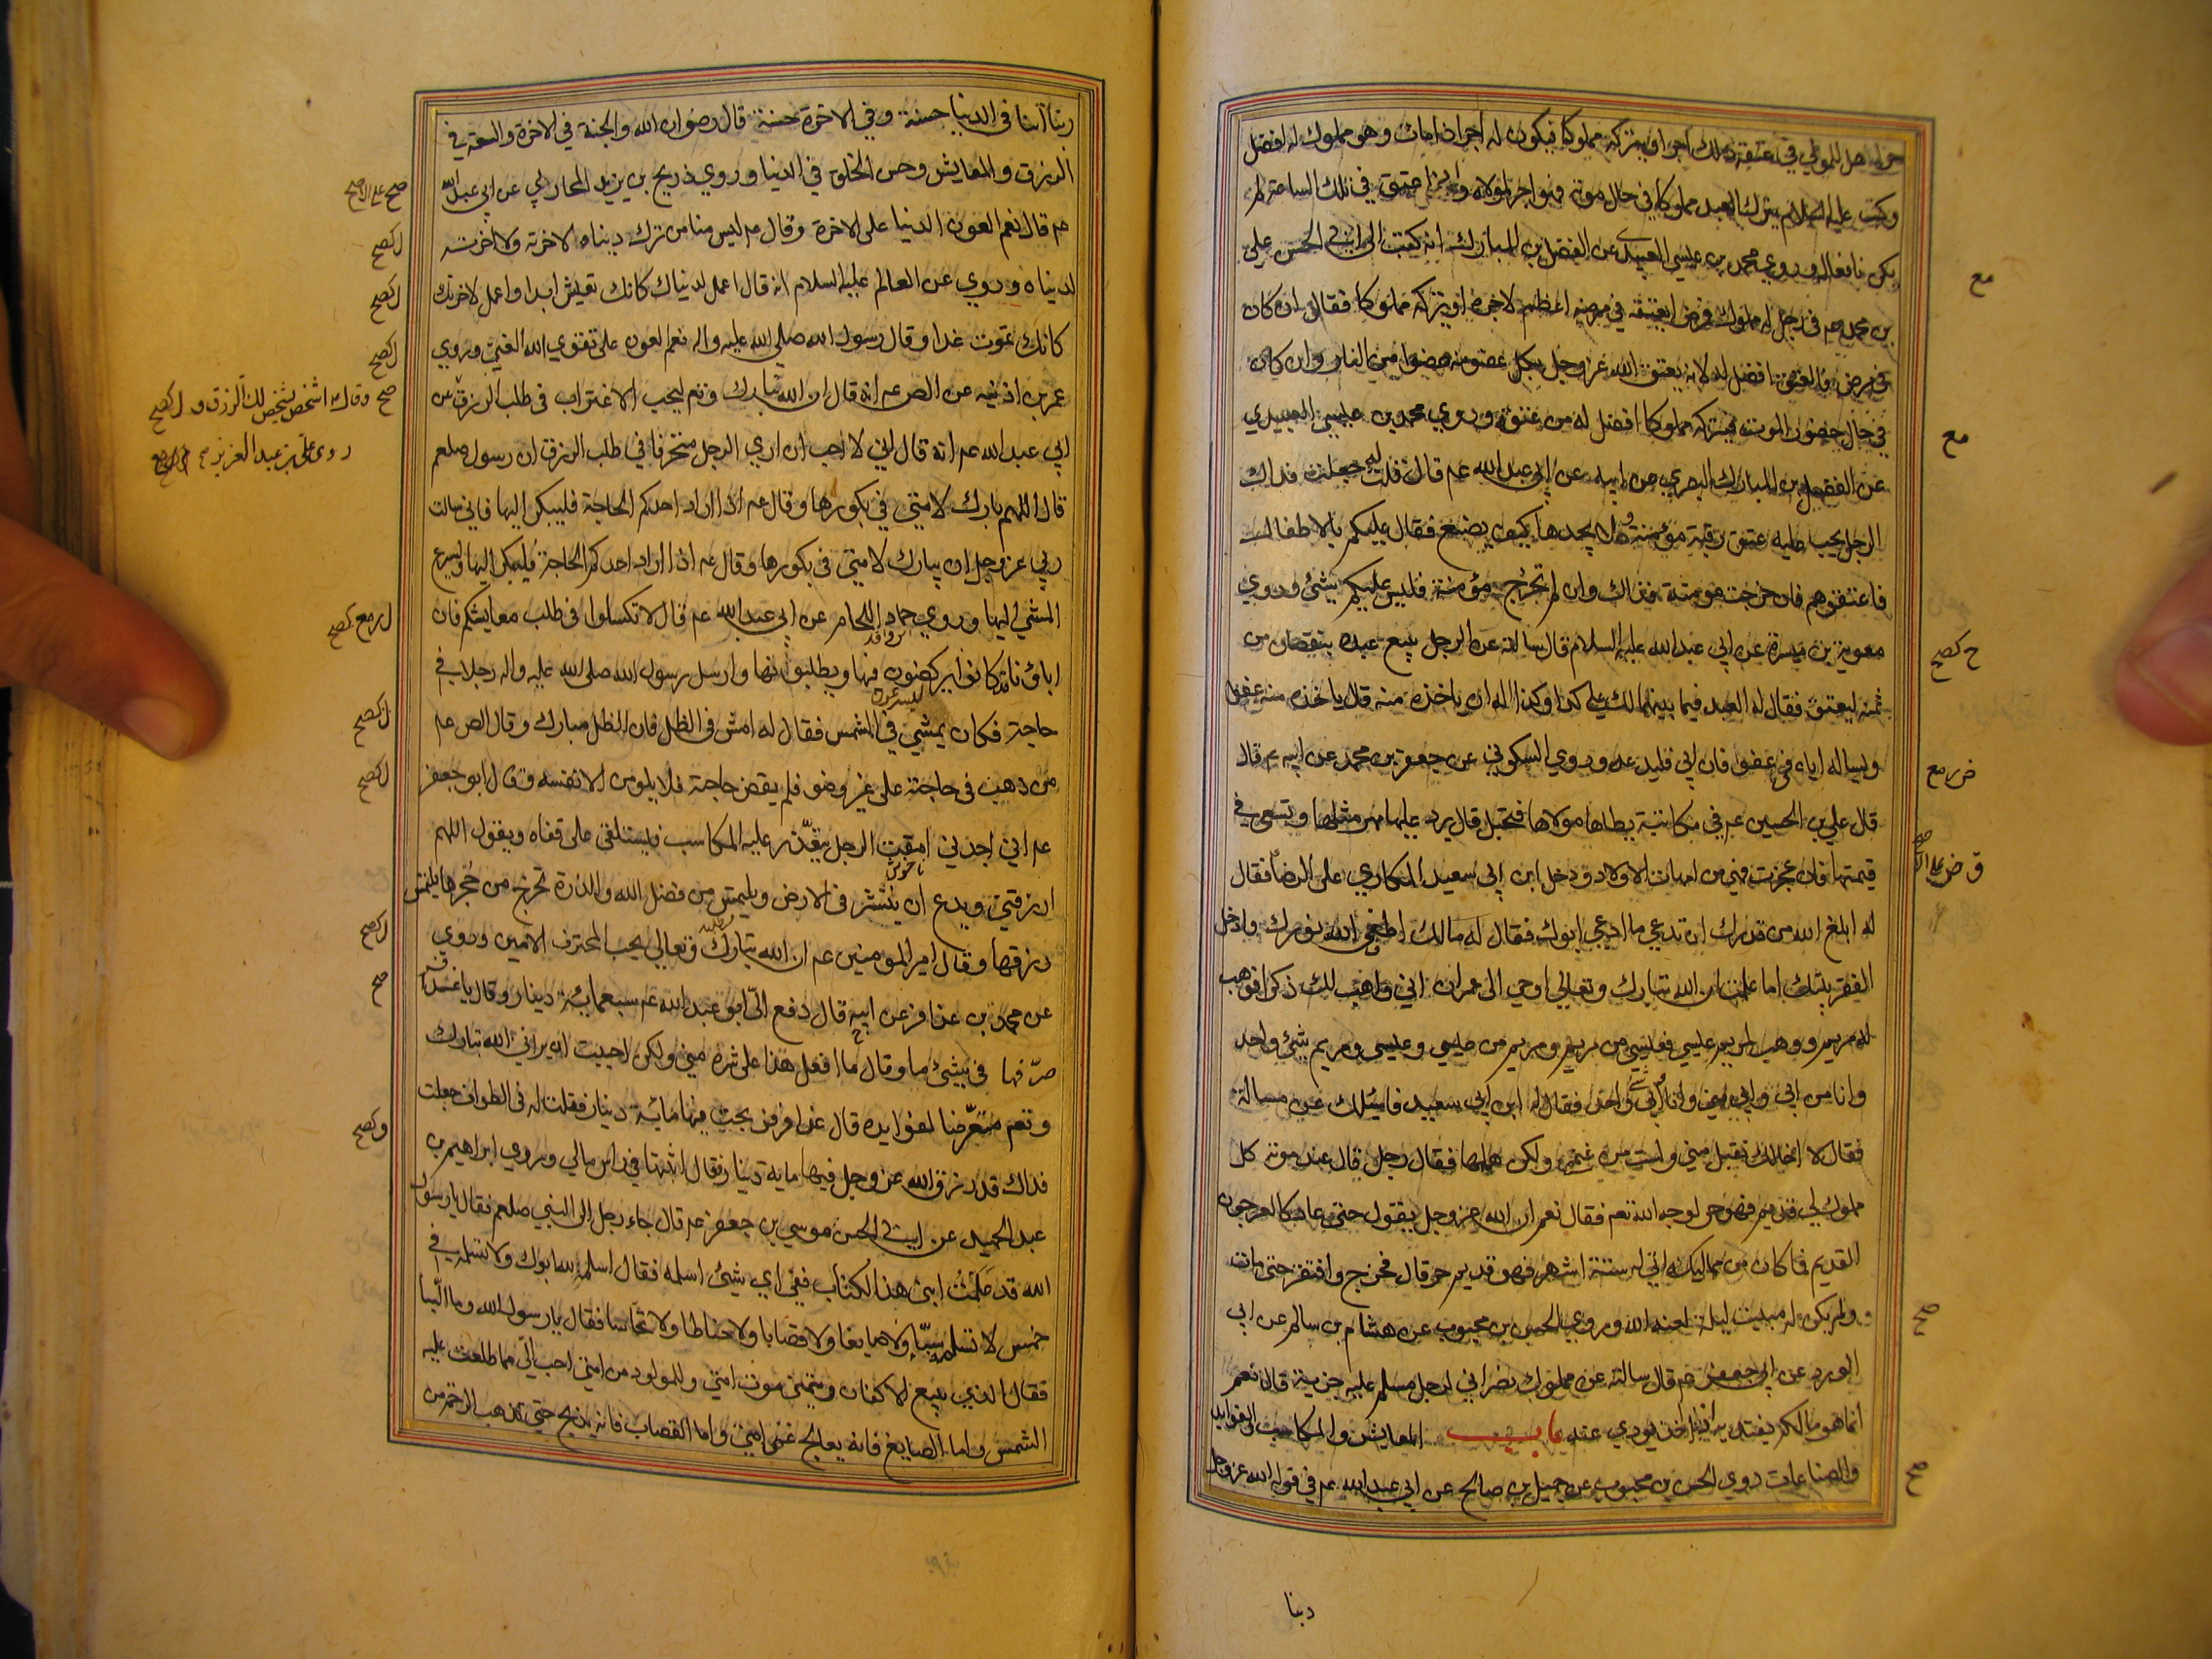 وكتب عليه السلام يترك العبد مملوكا في حال موته فهو اجر لمولاه وهذا عتق في تلك الساعة لم
يكن نافعا له وروي محمد بن عيسى العبيدي عن الفضل بن المبارك انه كتب الى ابي الحسن علي
بن محمد عم في رجل له مملوك فمرض ايعتقه في مرضه اعظم لاجره او يتركه مملوكا فقال ان كان
في مرض فالعتق افضل له لانه يعتق الله عز وجل بكل عضو منه عضوا من النار وان كان
في حال حضور الموت فيتركه مملوكا افضل له من عتقه وروي محمد بن عيسى العبيدي
عن الفضل بن المبارك البصري عن ابيه عن ابي عبد الله عم قال قلت له جعلت فداك
الرجل يجب عليه عتق رقبة مؤمنة ولا يجدها كيف يصنع فقال عليكم بالاطفال
فاعتقوهم فان خرجت مؤمنة فذاك وان لم تخرج مؤمنة فليس عليكم شئ وروي
معوية بن ميسرة عن ابي عبد الله عليه السلام قال سالته عن الرجل يبيع عبده بنقصان من
ثمنه ليعتق فقال له العبد فيما بينهما لك علي كذا وكذا اله ان ياخذه منه قال ياخذه منه عفوا
ويساله اياه في عفو فان ابي فليدعه وروي السكوني عن جعفر بن محمد عن ابيه عم قال
قال علي بن الحسين عم في مكاتبة يطاها مولاها فتحبل قال يرد عليها مهر مثلها وتسعى في
قيمتها فان عجزت فهي من امهات الاولاد ودخل ابن ابي سعيد المكاري على الرضا فقال
له ابلغ الله من قدرك ان تدعي ما ادعى ابوك فقال له مالك اطفى الله نورك وادخل
الفقر بيتك اما علمت ان الله تبارك وتعالى اوحى الى عمران اني واهب لك ذكرا فوهب
له مريم ووهب لمريم عيسى فعيسى من مريم ومريم من عيسى وعيسى ومريم شئ واحد
وانا من ابي وابي مني وانا وابي شئ واحد فقال له ابن ابي سعيد فاسئلك عن مسالة
فقال لا اخالك تقبل مني ولست من غنمي ولكن هلمها فقال رجل قال عند موته كل
مملوك لي قديم فهو حر لوجه الله نعم فقال نعم ان الله عز وجل يقول حتى عاد كالعرجون
القديم فما كان من مماليكه اتى له ستة اشهر فهو قديم حر قال فخرج وافتقر حتى مات
ولم يكن له مبيت ليلة لعنه الله وروي الحسن بن محبوب عن هشام بن سالم عن ابي
الورد عن ابي جعفر عم قال سالته عن مملوك نصراني لرجل مسلم عليه جزية قال نعم
انما هو مالكه يفتديه اذا اخذ يودي عنه باب المعايش والمكاسب والفوايد
والصناعات روي الحسن بن محبوب عن جميل بن صالح عن ابي عبد الله عم في قول الله عز وجل
ربنا
ربنا آتنا في الدنيا حسنة وفي الاخرة حسنة قال رضوان الله والجنة في الاخرة والسعة في
الرزق والمعايش وحسن الخلق في الدنيا وروي ذريح بن يزيد المحاربي عن ابي عبد الله
عم قال نعم العون الدنيا على الاخرة وقال عم ليس منا من ترك دنياه لاخرته ولا اخرته
لدنياه وروي عن العالم عليه السلام انه قال اعمل لدنياك كانك تعيش ابدا واعمل لاخرتك
كانك تموت غدا وقال رسول الله صلى الله عليه واله نعم العون على تقوي الله الغنى وروي
عمر بن اذينه عن الص عم انه قال ان الله تبارك وتع ليحب الاغتراب في طلب الرزق عن
وقال عم اشخص يشخص لك الرزق
روى علي بن عبد العزيز
ابي عبد الله عم انه قال اني لا احب ان اري الرجل متحرفا في طلب الرزق ان رسول صلعم
قال اللهم بارك لامتي في بكورها وقال عم اذا اراد احدكم الحاجة فليبكر اليها فاني سالت
ربي عز وجل ان يبارك لامتي في بكورها وقال عم اذا اراد احدكم الحاجة فليبكر اليها وليسرع
المشي اليها وروي حماد اللحام عن ابي عبد الله عم قال لا تكسلوا في طلب معايشكم فان
اباؤنا قد كانوا يركضون فيها ويطلبونها وارسل رسول الله صلى الله عليه واله رجلا في
حاجة فكان يمشي في الشمس فقال له امش في الظل فان الظل مبارك وقال الص عم
من ذهب في حاجة على غير وضو فلم يقض حاجة فلا يلومن الا نفسه وقال ابو جعفر
عم اني اجدني امقت الرجل يتعذر عليه المكاسب فيستلقي على قفاه ويقول اللهم
ارزقني ويدع ان ينتشر في الارض ويلتمس من فضل الله والذرة تخرج من حجرها يلتمس
رزقها وقال امير المومنين عم ان الله تبارك وتعالى يحب المحترف الامين وروي
عن محمد بن عذافر عن ابيه قال دفع الي ابو عبد الله عم سبعمائة دينار وقال يا عذافر
صرفها في شئ ما وقال ما افعل هذا على شره مني ولكن احببت ان يراني الله تبارك
وتعم متعرضا لفوايده قال عذافر فربحت فيها مائة دينار فقلت له في الطواف جعلت
فداك قد رزق الله عز وجل فيها مايه دينار فقال اثبتها في راس مالي وروي ابراهيم بن
عبد الحميد عن ابي الحسن موسى بن جعفر عم قال جاء رجل الى النبي صلعم فقال يا رسول
الله قد علمت ابني هذا الكتاب ففي اي شئ اسلمه فقال اسلمه لله ابوك ولا تسلمه في
خمس لا تسلمه سباء ولا صايغا ولا قصابا ولا حناطا ولا نخاسا فقال يا رسول الله وما السبا
فقال الذي يبيع الاكفان ويتمنى موت امتي وللمولود من امتي احب الي مما طلعت عليه
الشمس واما الصايغ فانه يعالج غبن امتي واما القصاب فانه يذبح حتى تذهب الرحمة من